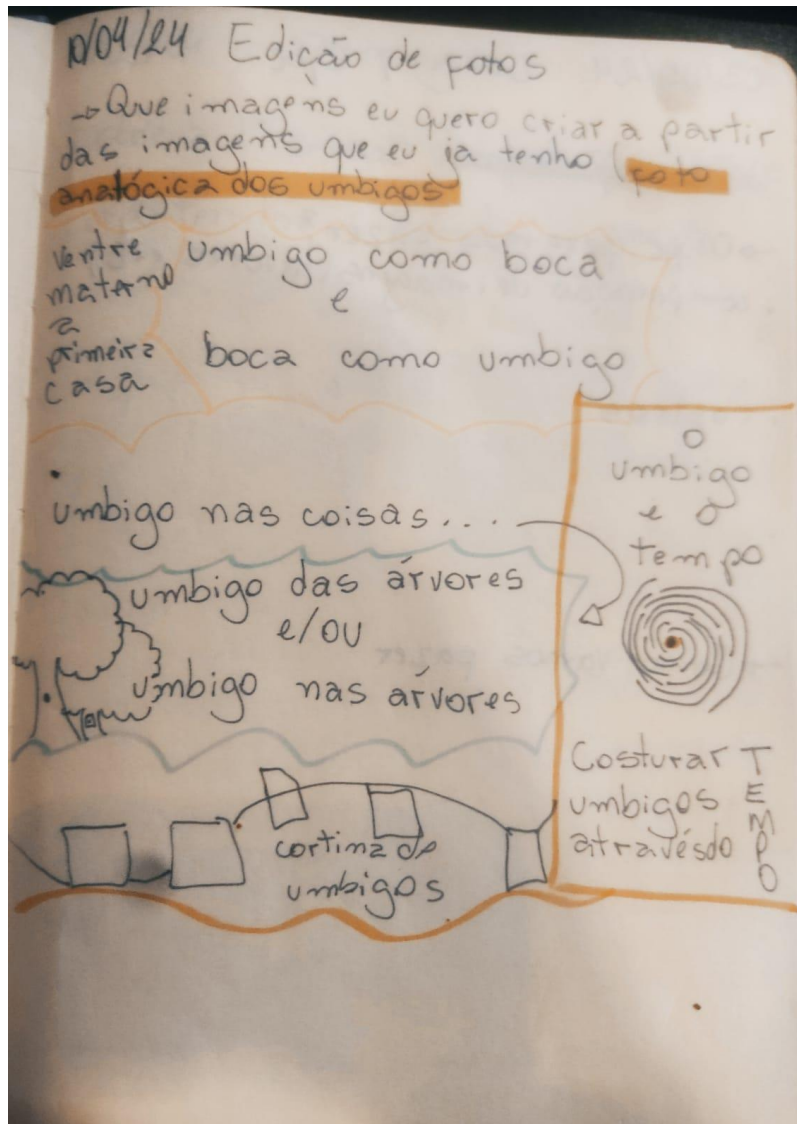 10/04/24 Edição de fotos
→ Que imagens eu quero criar a partir
das imagens que eu ja tenho (foto
analógica dos umbigos
ventre
materno
a
primeira
casa
umbigo como boca
e
boca como umbigo
umbigo nas coisas...
umbigo das árvores
e/ou
umbigo nas árvores
cortina de
umbigos
O
umbigo
e o
tempo
Costurar
umbigos
através do
TEMPO